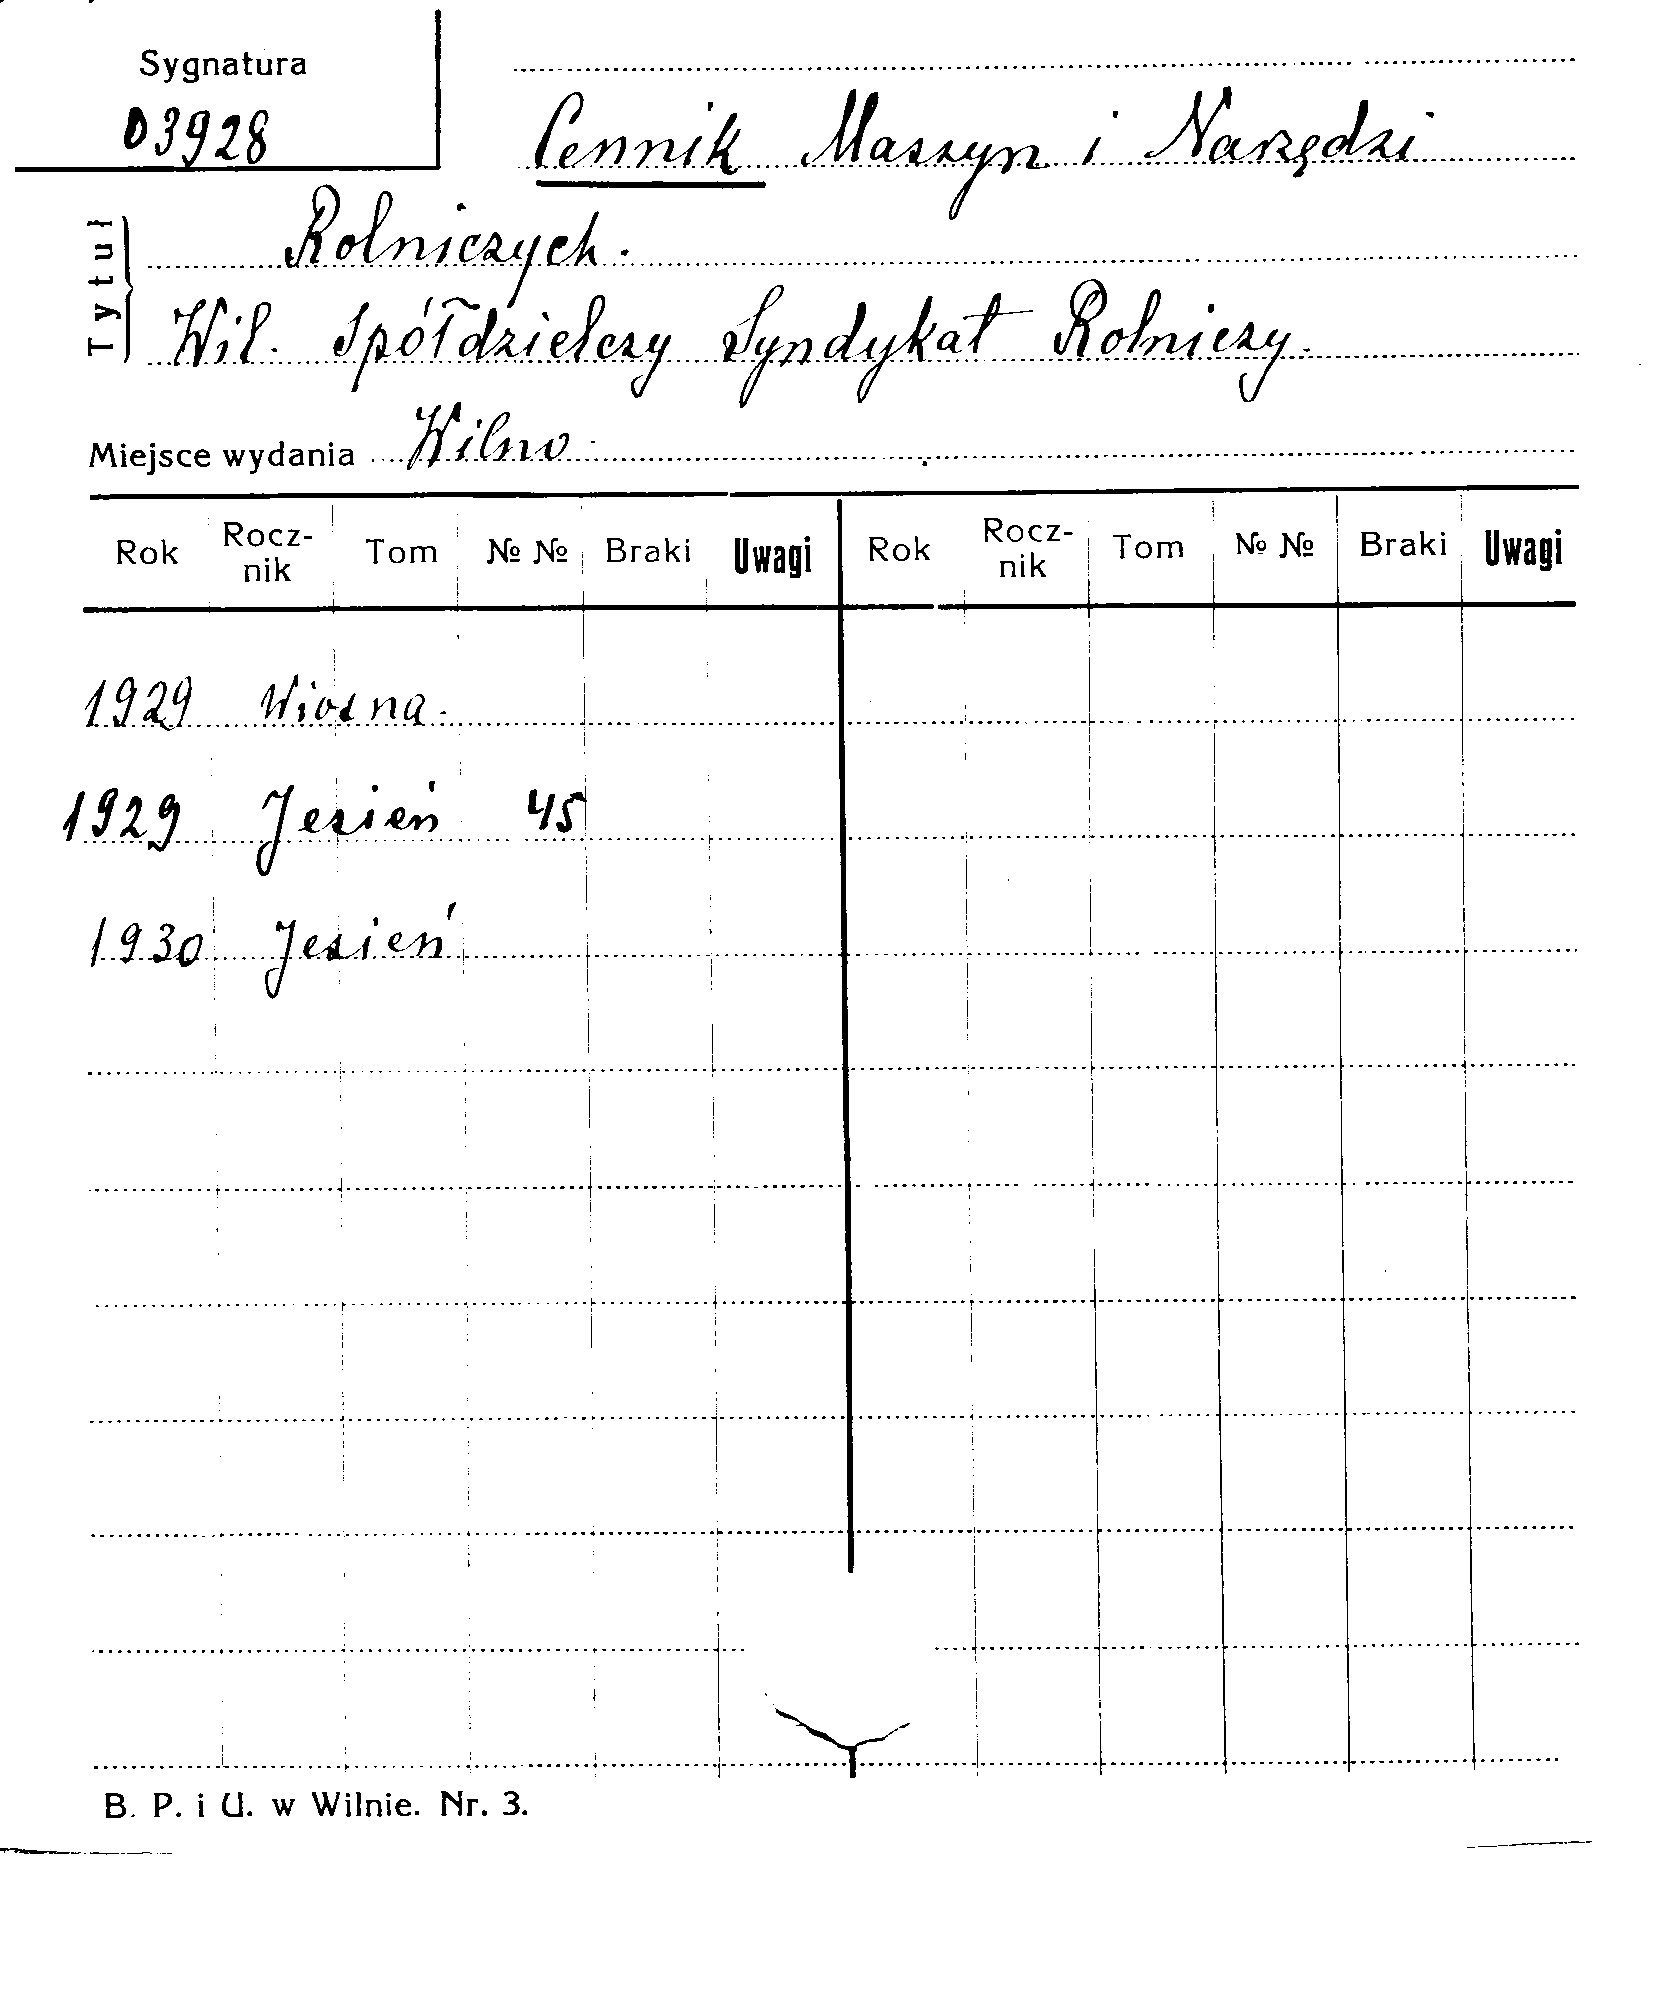 Sygnatura
03928
Cennik Maszyn i Narzędzi
Tytuł
Rolniczych.
Wil. Spółdzielczy Syndykat Rolniczy.
Miejsce wydania Wilno
Rok Rocz-nik Tom № № Braki Uwagi Rok Rocz-nik Tom № № Braki Uwagi
1929 Wiosna.
1929 Jesień 45
1930 Jesień
B. P. i U. w Wilnie. Nr. 3.